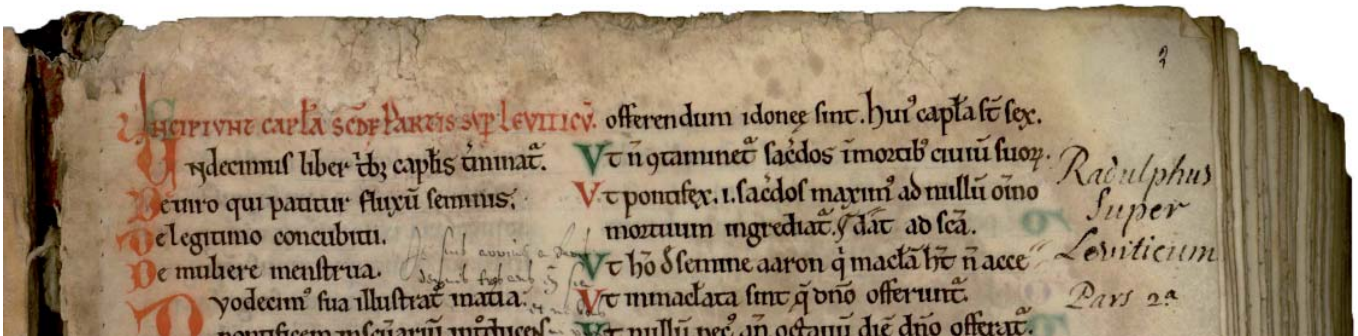 INCIPIUNT CAPLA SCDE PARTIS SUP LEVITICŪ.
Undecimus liber tb; caplis tminat.
De uiro qui patitur fluxū seminis.
De legitimo concubitu.
De muliere menstrua.
Duodecim' sua illustrat matia.
offerendum idonee sint. hui' capła st̄ sex.
Vt n̄ 9taminet sac̄dos ī mortib' ciuiū suoꝝ.
Vt pontifex .i. sac̄dos maxim' ad nullū om̄o
mortuum ingrediat. ad sc̄a.
Vt hō d̄ semine aaron q̇ maclā ht̄ n̄ acce
Vt inmaclata sint q̄ dn̄o offerunt.
Vt nullū pec' an̄ octauū diē dn̄o offerat.
2
Radulphus
Super
Leviticum
Pars 2a